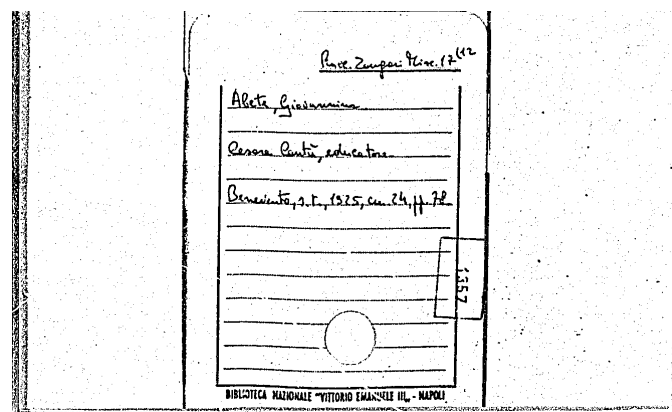 Race. Zangari Misc. 17(12
Abete, Giovannina
Cesare Cantù, educatore.
Benevento, s.t., 1925, cm. 24, pp. 78
1357
BIBLIOTECA NAZIONALE "VITTORIO EMANUELE III„ - NAPOLI